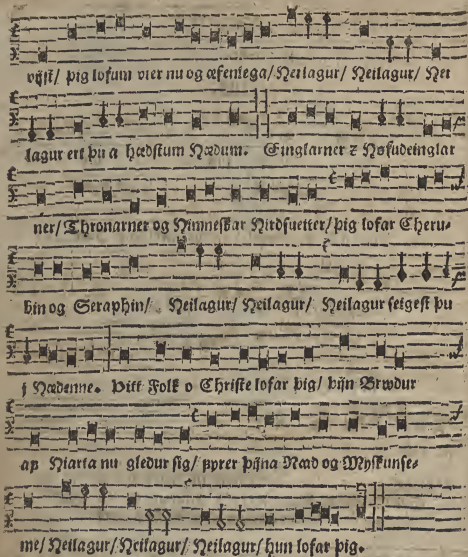 vijst/ þig lofum vier nu og æfenlega/ Heilagur/ Heilagur/ Hei
lagur ert þu a hædstum Hædum. Einglarner z Høfudeinglar
ner/ Thronarner og Himneskar Hirdsueiter/ þig lofar Cheru-
bin og Seraphin/ Heilagur/ Heilagur/ Heilagur seigest þu
j Hædenne. Þitt Folk o Christe lofar þig/ þijn Brwdur
ap Hiarta nu gledur sig/ fyrer þijna Nad og Myskunse-
me/ Heilagur/ Heilagur/ Heilagur/ hun lofar þig.